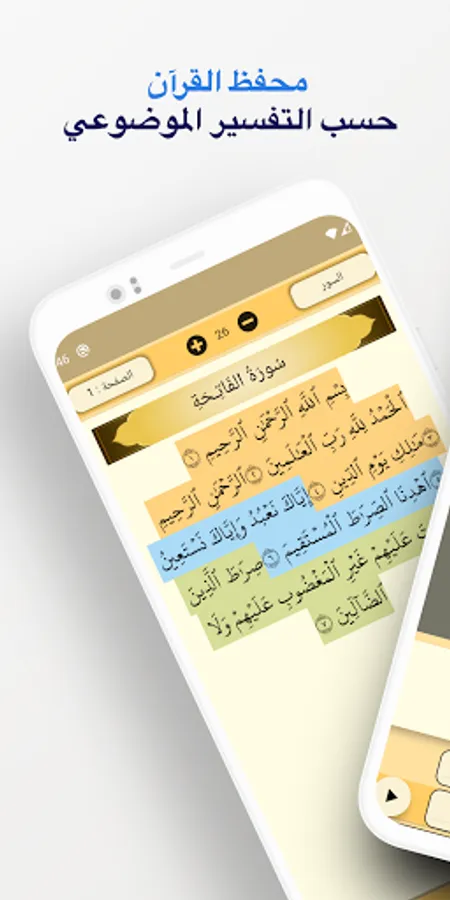 محفظ القرآن
حسب التفسير الموضوعي
46
السور
26
الصفحة : 1
سُورَةُ الفَاتِحَةِ
بِسْمِ ٱللَّهِ ٱلرَّحْمَٰنِ ٱلرَّحِيمِ ١
ٱلْحَمْدُ لِلَّهِ رَبِّ ٱلْعَٰلَمِينَ ٢ ٱلرَّحْمَٰنِ ٱلرَّحِيمِ
٣ مَٰلِكِ يَوْمِ ٱلدِّينِ ٤ إِيَّاكَ نَعْبُدُ وَإِيَّاكَ نَسْتَعِينُ
ٱهْدِنَا ٱلصِّرَٰطَ ٱلْمُسْتَقِيمَ ٦ صِرَٰطَ ٱلَّذِينَ
عَلَيْهِمْ غَيْرِ ٱلْمَغْضُوبِ عَلَيْهِمْ وَلَا
ٱلضَّآلِّينَ ٧